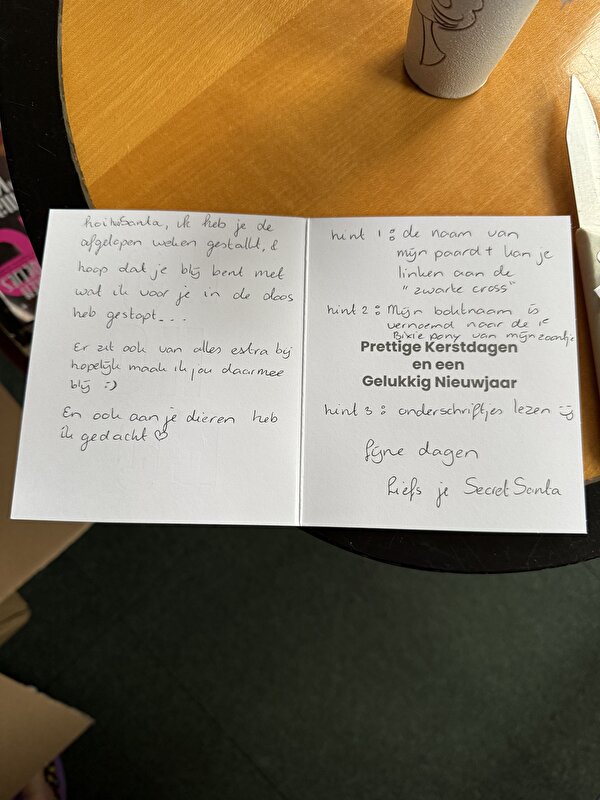 hoi Santa, ik heb je de
afgelopen weken gestalkt, &
hoop dat je blij bent met
wat ik voor je in de doos
heb gestopt...
Er zit ook van alles extra bij
hopelijk maak ik jou daarmee
blij :)
En ook aan je dieren heb
ik gedacht ♡
hint 1: de naam van
mijn paard + kan je
linken aan de
"zwarte cross"
hint 2: Mijn boktnaam is
vernoemd naar de 1e
Bixie pony van mijn zoontje
Prettige Kerstdagen
en een
Gelukkig Nieuwjaar
hint 3: onderschriftjes lezen :)
fijne dagen
Liefs je Secret Santa